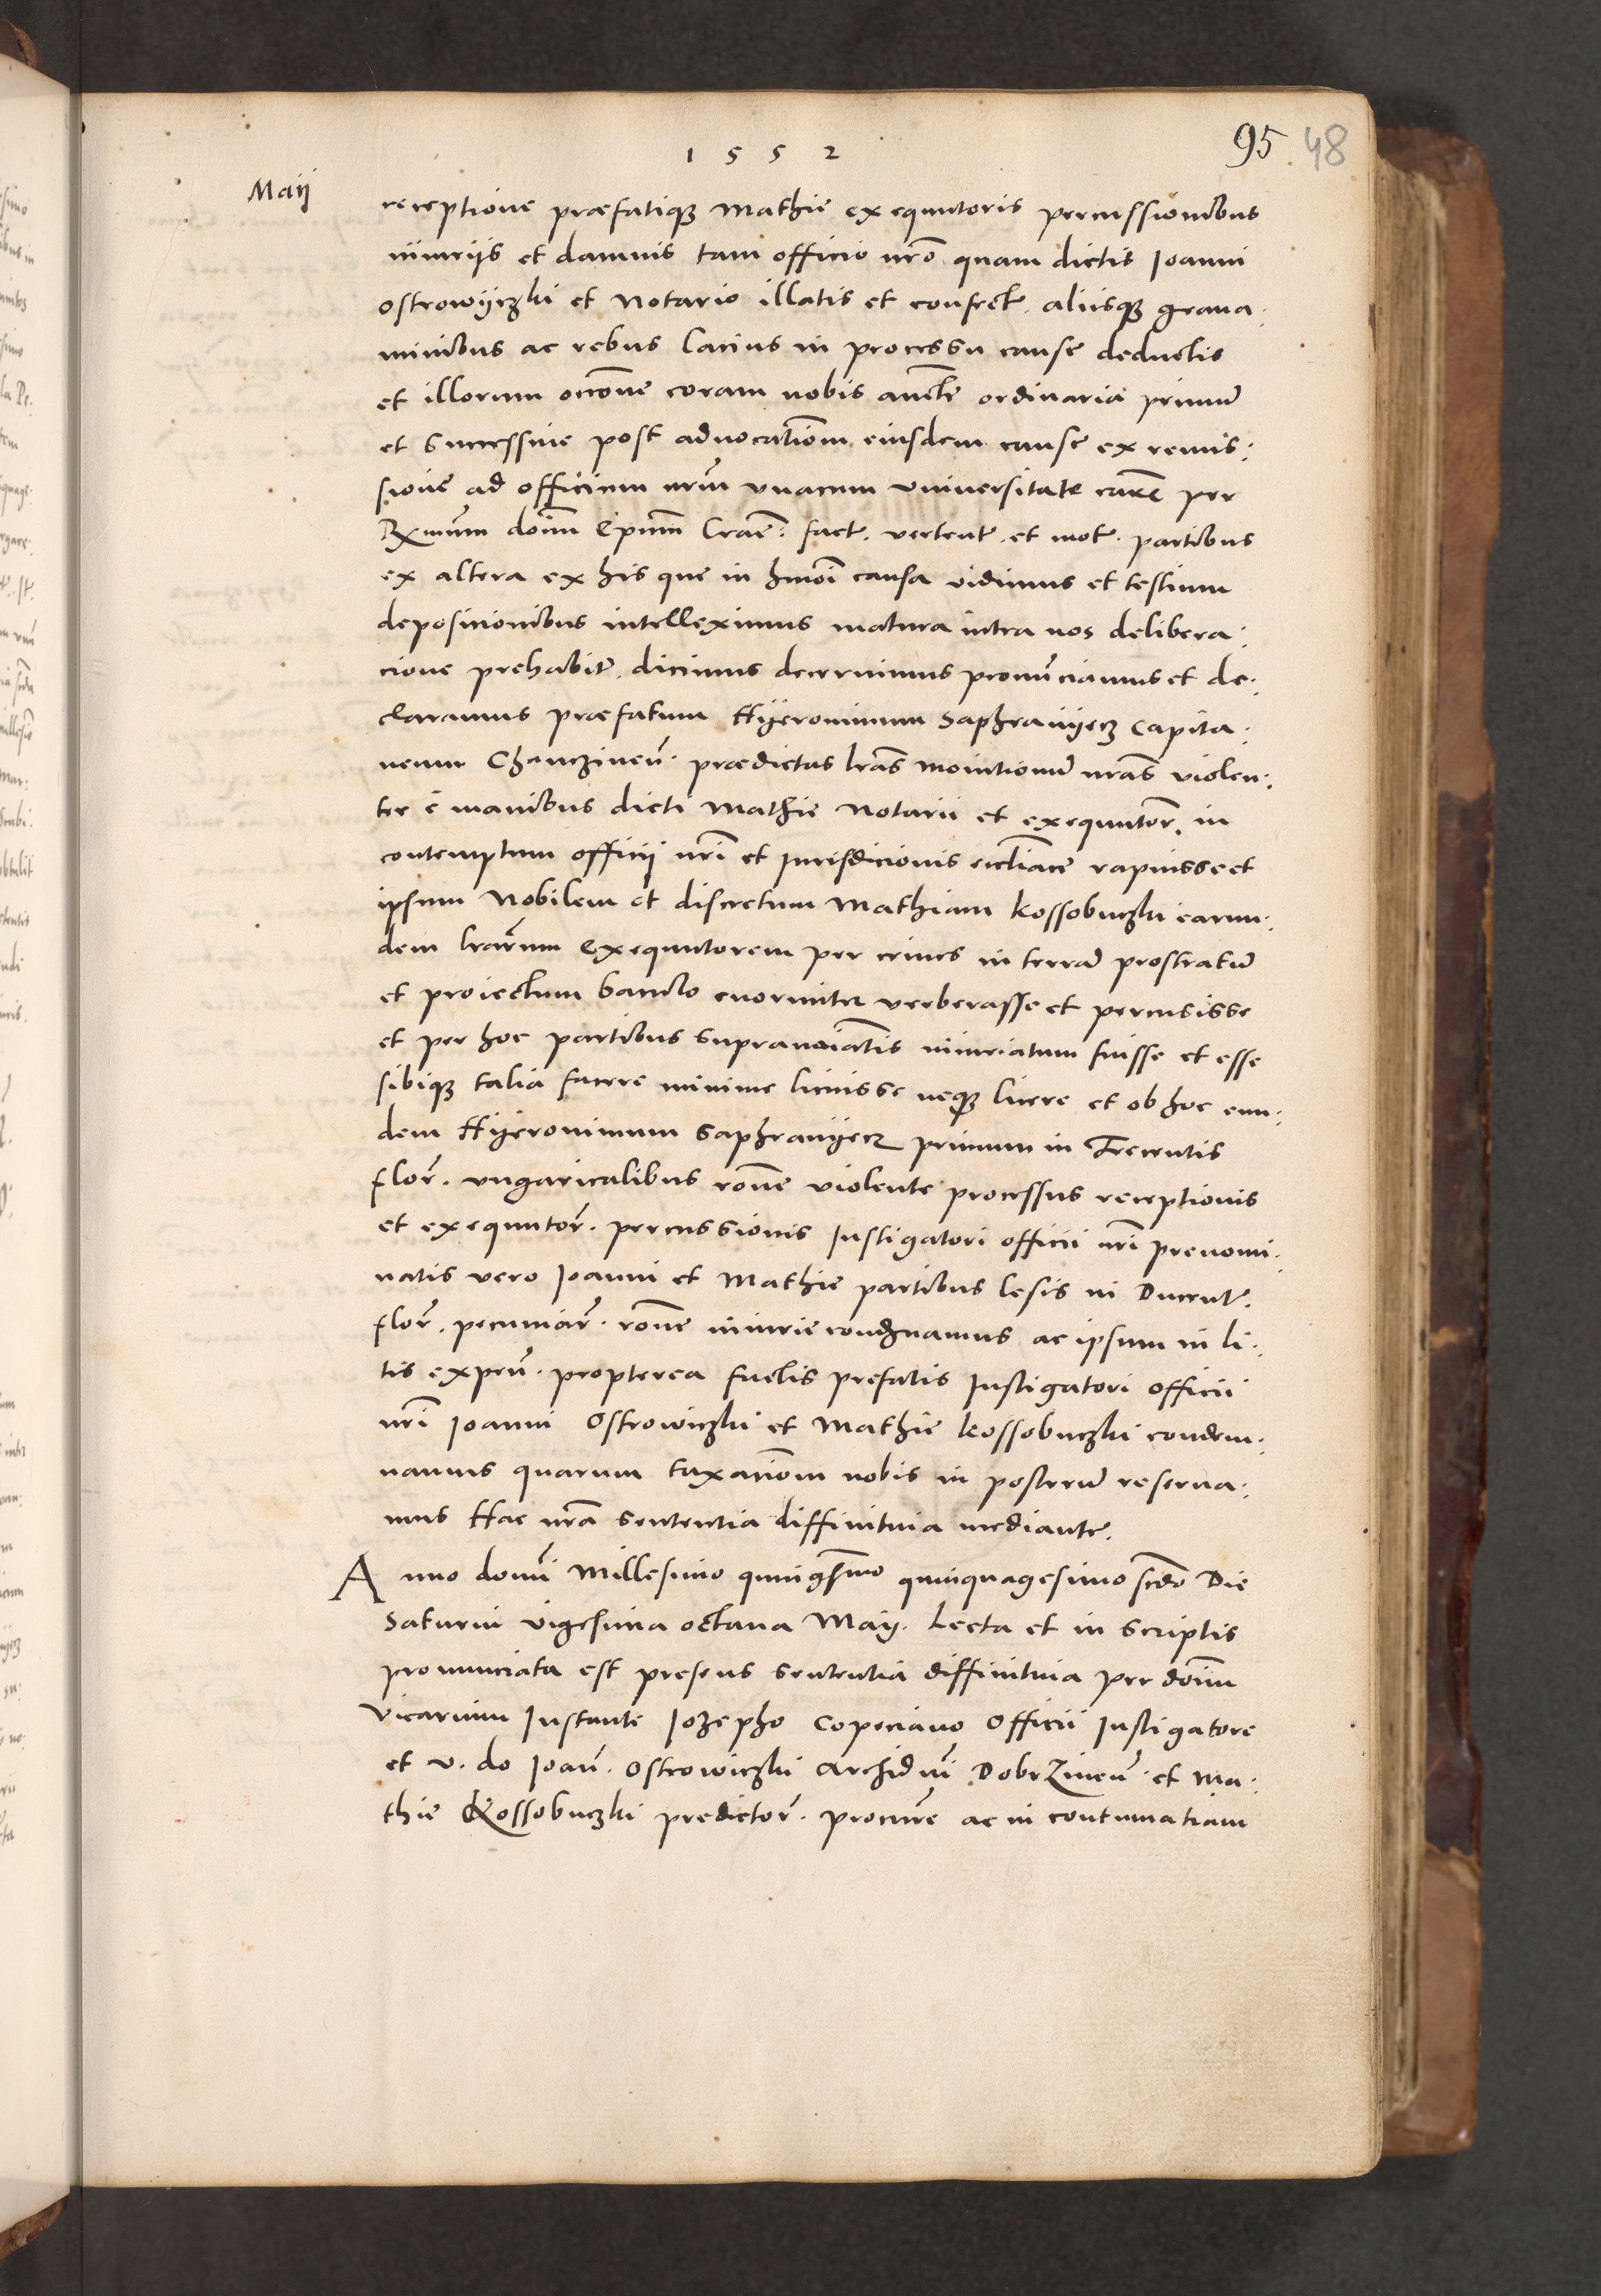 1552
95 48
Maij
receptione præfatiqȝ Mathie exequutoris percussionibus
iniuriis et damnis tam officio nr̃o quam dictis Ioanni
Ostrowijczki et Notario illatis et confect. aliisqȝ graua:
minibus ac rebus lacius in processu cause deductis
et illorum occõne coram nobis auctẽ ordinaria primum
et successiue post aduocatiõm eiusdem cause ex remis:
sione ad officium nr̃m vnacum vniuersitate cause per
Rx̃mum dom̃ Ep̃um Crac̃. fact. vertent. et mot. partibus
ex altera ex his que in hm̃oi causa vidimus et testium
deposicionibus intelleximus matura intra nos delibera:
cione prehabit. dicimus decernimus pronũciamus et de:
claramus præfatum Hyeronimum Saphranijecz Capita:
neum Chanczineñ. prædictas lrãs monitionum nrãs violen:
ter è manibus dicti Mathie Notarii et exequutor̃. in
contemptum officij nr̃i et Iurisdicionis eccl̃iace rapuisse et
ipsum Nobilem et discretum Mathiam Kossobuczki earun:
dem lrãrum Exequutorem per crines in terram prostratum
et proiectum baculo enormiter verberasse et percusisse
et per hoc partibus supranoĩatis iniuriatum fuisse et esse
sibiqȝ talia facere minime licuisse neqȝ licere et ob hoc eun:
dem Hyeronimum Saphranijecz primum in Trecentis
flor̃. vngaricalibus rõne violente processus receptionis
et exequutor̃. percussionis Instigatori officii nr̃i prenomi:
natis vero Ioanni et Mathie partibus lesis in Ducent.
flor̃. pecuniar̃. rõne iniurie condẽnamus ac ipsum in li:
tis expeñ. propterea factis prefatis Instigatori officii
nr̃i Ioanni Ostrowiczki et Mathie Kossobuczki condem:
namus quarum taxatiõm nobis in posterum reserua:
mus Hac nrã sententia diffinitiua mediante.
Anno domĩ Millesimo quing̃smo quinquagesimo scd̃o Die
Saturni vigesima octaua Maij. Lecta et in scriptis
pronunciata est presens sententia diffinitiua per doñm
vicarium Instante Iozepho Copeciano Officii Instigatore
et v. do Ioañ. Ostrowiczki Archidñi Dobrzineñ. et Ma:
thie Kossobuczki predictor̃. procure ac in contumatiam